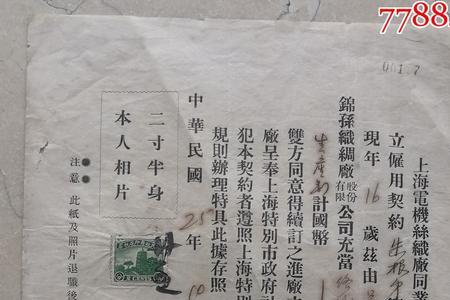 7788
001.7
上海電機絲織廠同業
立僱用契約朱根
現年16歲茲由
錦孫織綢廠股份有限公司充當
生產部計國幣
雙方同意得續訂之進廠
廠呈奉上海特別市政府社
犯本契約者遵照上海特別
規則辦理特具此據存照
中華民國25年
二寸半身
本人相片
注意 此紙及照片退職後